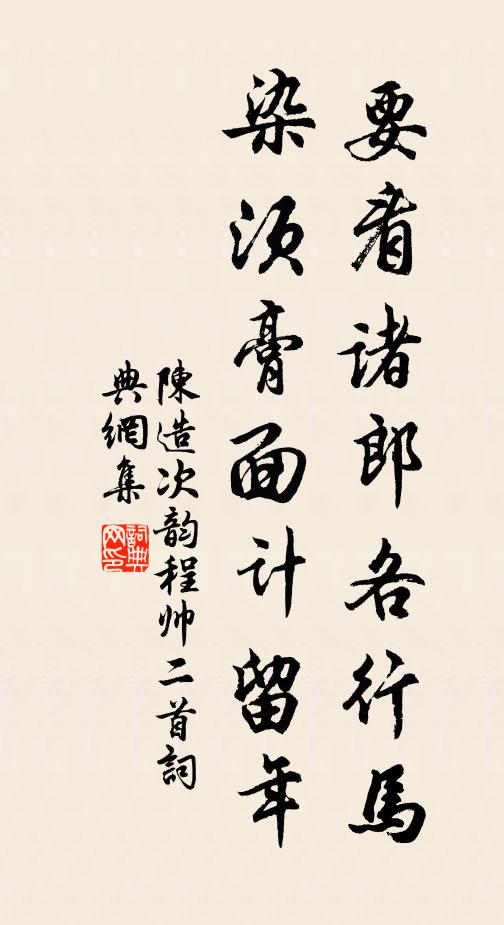 要看诸郎各行馬
染须膏面计留年
陳造次韵程帅二首詞
典網集
詞典
网印